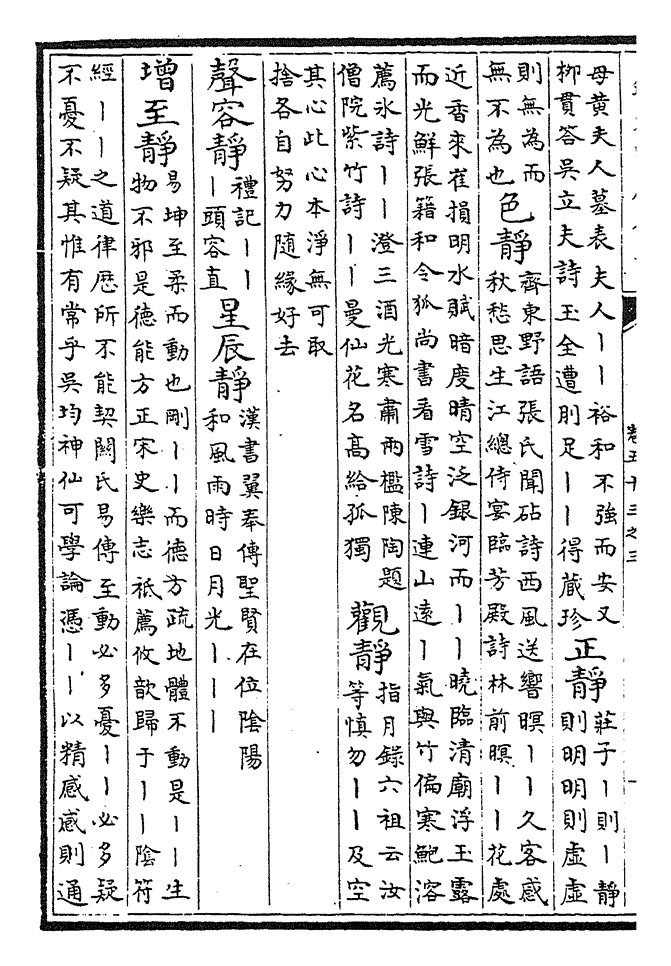 卷五十三之三
母黄夫人墓表夫人丨丨裕和不強而安又
栁貫答吳立夫詩玉全遭刖足丨丨得蔵珍
正靜
莊子丨則丨靜
則明明則虛虛
則無為而
無不為也
色靜
齊東野語張氏聞砧詩西風送響暝丨丨久客感
秋愁思生江總侍宴臨芳殿詩林前暝丨丨花處
近香來崔損明水賦暗度晴空泛銀河而丨丨曉臨清廟浮玉露
而光鮮張籍和令狐尚書看雪詩丨連山逺丨氣與竹偏寒鮑溶
薦氷詩丨丨澄三酒光寒肅兩楹陳陶題
僧院紫竹詩丨丨曼仙花名髙給孤獨
觀靜
指月錄六祖云汝
等慎勿丨丨及空
其心此心本淨無可取
捨各自努力隨緣好去
聲容靜
禮記丨丨
丨頭容直
星辰靜
漢書翼奉傳聖賢在位陰陽
和風雨時日月光丨丨丨
增至靜
易坤至柔而動也剛丨丨而德方疏地體不動是丨丨生
物不邪是德能方正宋史樂志祗薦攸歆歸于丨丨陰符
經丨丨之道律歴所不能契關氏易傳至動必多憂丨丨必多疑
不憂不疑其惟有常乎吳均神仙可學論憑丨丨以精感感則通